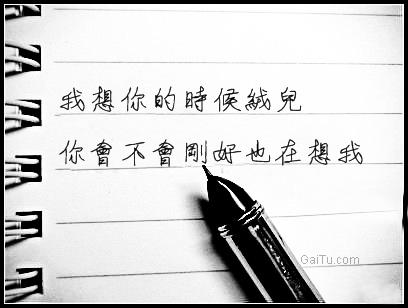 我想你的時候絨兒
你會不會剛好也在想我
GaiTu.com